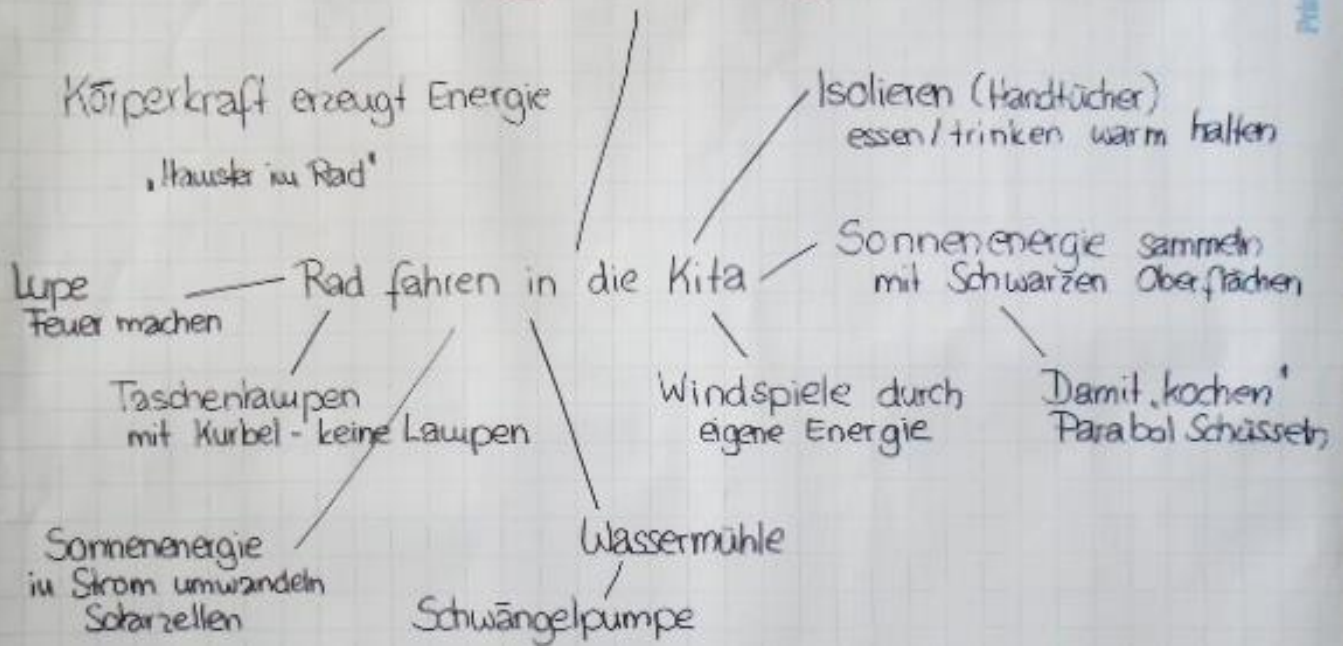 Körperkraft erzeugt Energie
„Hamster im Rad"
Isolieren (Handtücher)
essen/trinken warm halten
Sonnenenergie sammeln
mit Schwarzen Oberflächen
Rad fahren in die Kita
Lupe
Feuer machen
Taschenlampen
mit Kurbel - keine Lampen
Windspiele durch
eigene Energie
Damit „kochen"
Parabol Schüsseln
Sonnenenergie
in Strom umwandeln
Solarzellen
Wassermühle
Schwängelpumpe